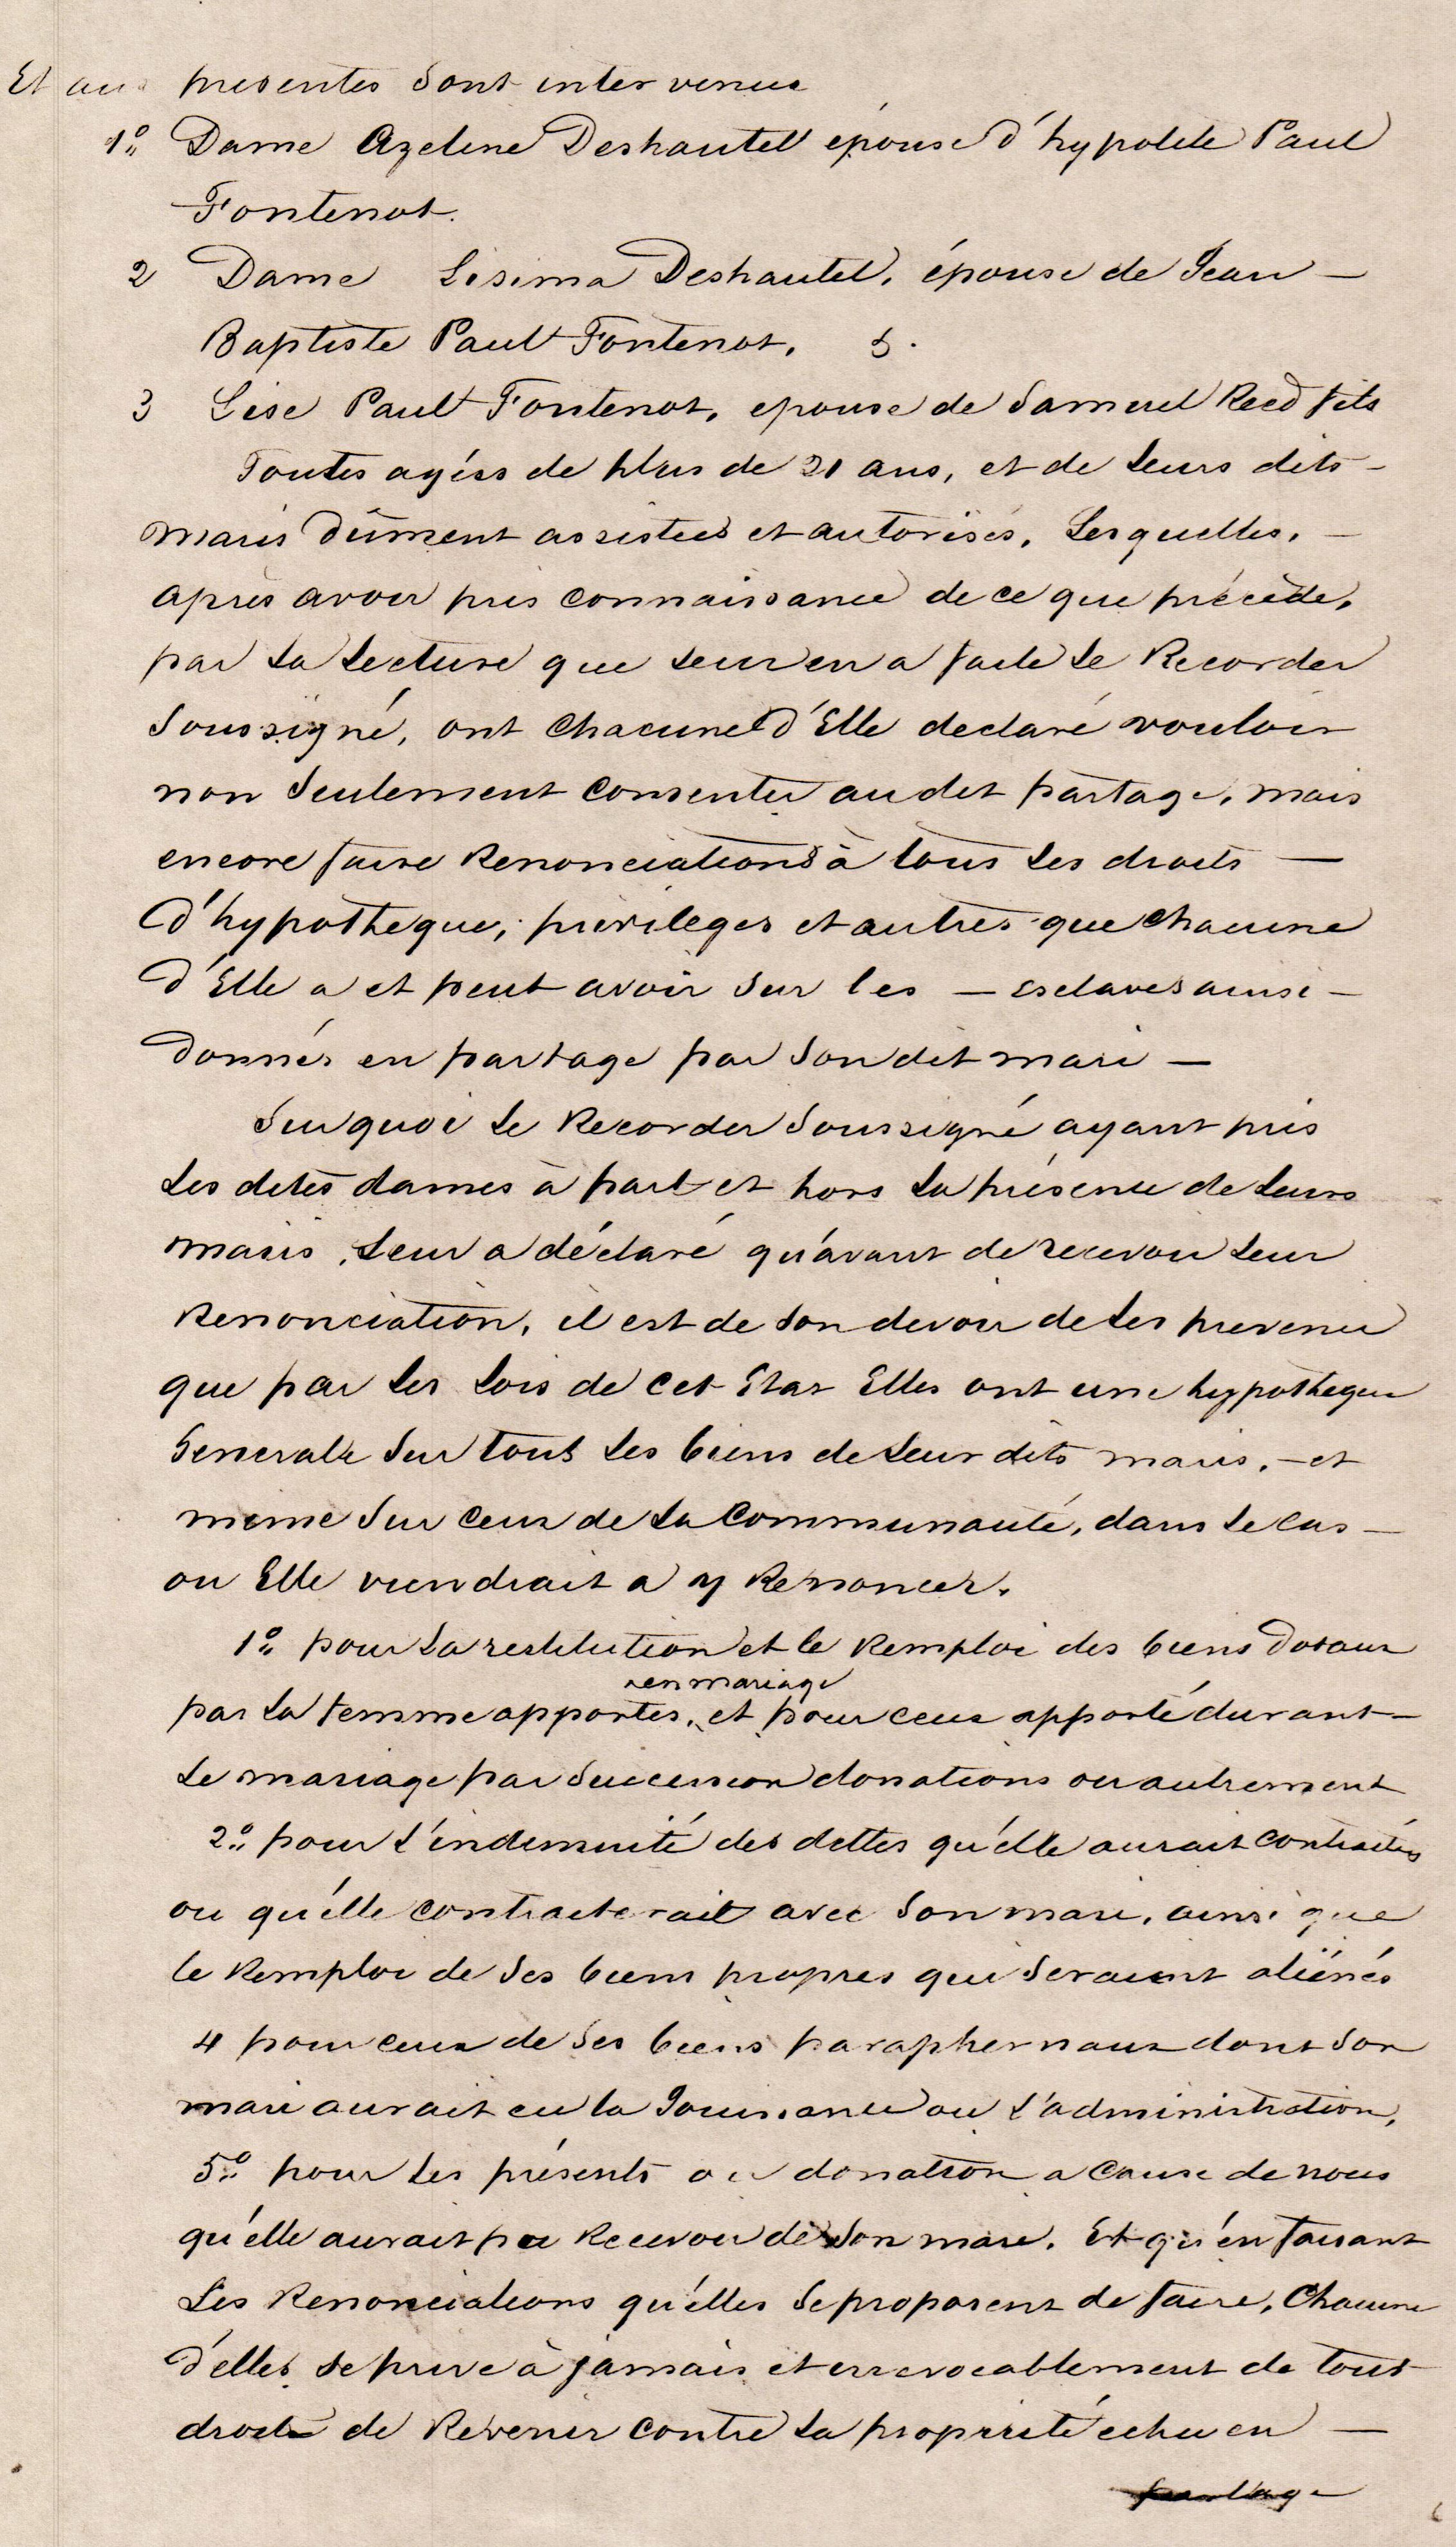 Et aux presentes sont intervenues
1º Dame Azeline Deshautel épouse d'hypolite Paul
Fontenot.
2 Dame Lisima Deshautel, épouse de Jean —
Baptiste Paul Fontenot.
3 Lise Paul Fontenot, epouse de Samuel Reed fils
Toutes agées de plus de 21 ans, et de leurs dits —
maris dûment assistées et autorisés, Lesquelles, —
après avoir pris connaissance de ce que précède,
par la lecture que leur en a faite le Recorder
Soussigné, ont Chacune d'Elle declaré vouloir
non Seulement Consentir au dit partage, mais
encore faire Renonciations à tous les droits —
d'hypothèque, privileges et autres que Chacune
d'Elle a et peut avoir Sur les — esclaves ainsi —
donnés en partage par Son dit mari —
Sur quoi le Recorder Soussigné ayant pris
les dites dames à part et hors la présence de leurs
maris, leur a déclaré qu'avant de recevoir leur
Renonciation, il est de Son devoir de les prevenir
que par les lois de cet Etat Elles ont une hypotheque
Generale Sur tous les biens de leur dits maris, — et
meme Sur Ceux de la Communauté, dans le cas —
ou Elle viendrait a y Renoncer.
1º pour la restitution et le Remploi des biens dotaux
en mariage
par la femme apportés, et pour ceux apporté durant —
le mariage par Succession donations ou autrement
2º pour l'indemnité des dettes qu'elle aurait contractées
ou qu'elle contracterait avec Son mari, ainsi que
le Remploi de Ses biens propres qui Seraient aliénés
4 pour ceux de Ses biens paraphernaux dont Son
mari aurait eu la Jouissance ou l'administration,
5º pour les présents ou donation a Cause de noces
qu'elle aurait pu Recevoir de Son mari. Et qu'en faisant
Les Renonciations qu'elles Se proposent de faire, Chacune
d'elles Se prive à jamais et irrevocablement de tout
droits de Revenir Contre la proprieté echue en —
partage